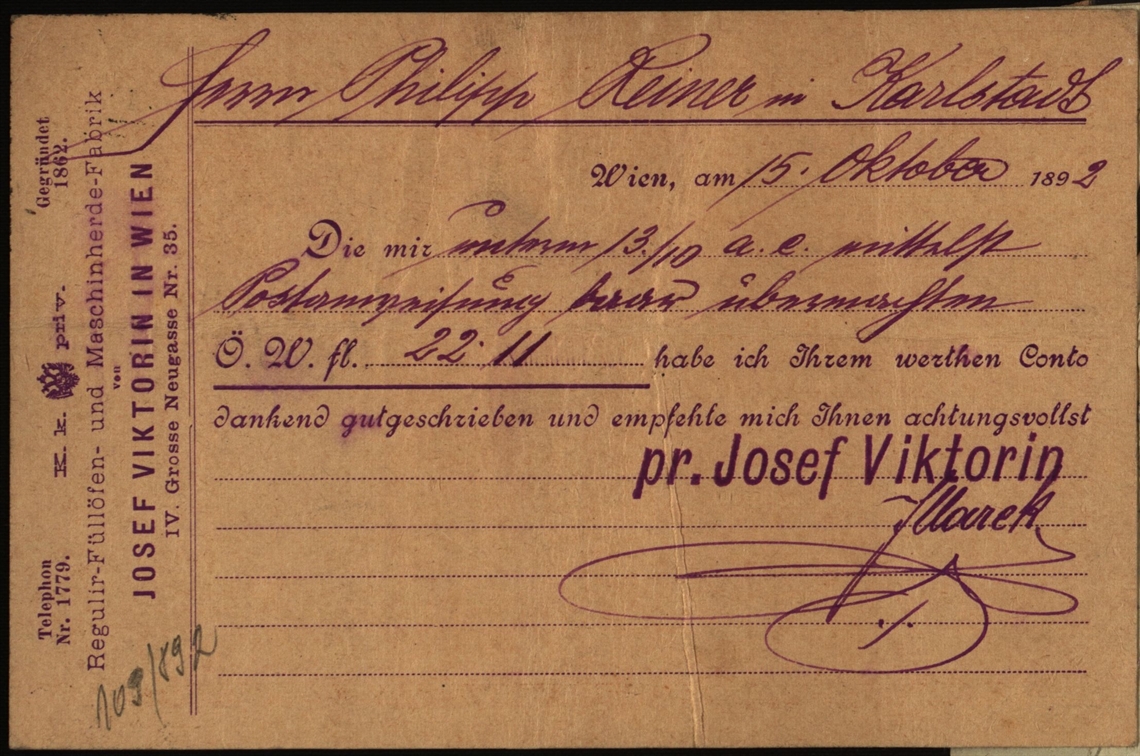 Herrn Philipp Reiner in Karlstadt
Wien, am 15. Oktober 1892
Die mir unterm 13./10 a. c. mittelst
Postanweisung baar übermachten
Ö. W. fl. 22.11 habe ich Ihrem werthen Conto
dankend gutgeschrieben und empfehle mich Ihnen achtungsvollst
pr. Josef Viktorin
JMarek
Gegründet
1862.
K. k. priv.
Telephon
Nr. 1779.
Regulir-Füllöfen- und Maschinherde-Fabrik
von
JOSEF VIKTORIN IN WIEN
IV. Grosse Neugasse Nr. 35.
109/892